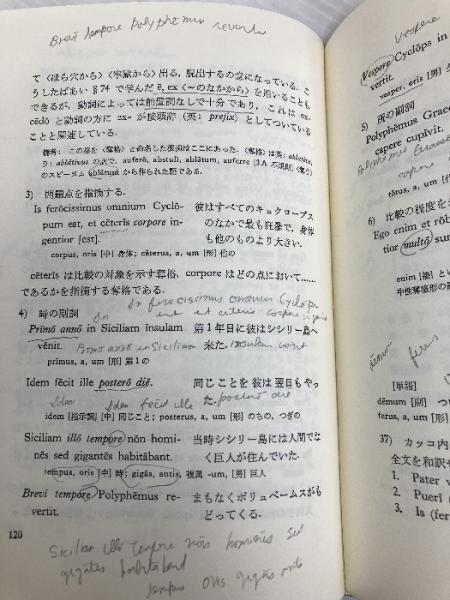 Brevī tempore Polyphemus reverti
て〈ほら穴から〉〈牢獄から〉出る，脱出するの意になっている．こ
うしたばあい§74で学んだ ē, ex〈～のなかから〉を用いることも
できるが，動詞によっては前置詞なしで十分であり，これは ex-
cēdō と動詞の方に ex- が接頭辞（英：prefix）としてついている
ことと関連している．
3) 問題点を指摘する．
Is ferōcissimus omnium Cyclō- 彼はすべてのキュクロープス
pum est, et cēterīs corpore in- のなかで最も狂暴で，身体
gentior [est]. も他のものより大きい．
corpus, oris [中] 身体；cēterus, a, um [形] 他の
cēterīs は比較の対象を示す奪格，corpore はどの点において……
であるかを指摘する奪格である．
4) 時の副詞
In ferocissimus omnium Cyclope
Prīmō annō in Siciliam īnsulam 第1年目に彼はシシリー島へ
vēnit. 来た．
Primo anno in Siciliam insulam venit
prīmus, a, um [形] 第1の
Idem fēcit ille posterō diē. 同じことを彼は翌日もやっ
た．
Idem fecit ille postero die
idem [指示詞] [中] 同じこと；posterus, a, um [形] のちの，つぎの
Siciliam illō tempore nōn homi- 当時シシリー島には人間でな
nēs sed gigantēs habitābant. く巨人が住んでいた．
tempus, oris [中] 時；gigās, antis, 複属 -um, [男] 巨人
Brevī tempore Polyphēmus re- まもなくポリュペームスがも
vertit. どってくる．
120
Siciliam illo tempore nōn homines sed
gigantes habitabant
tempus oris gigas antis
Vespere
Vespere Cyclōps in
vertit.
vesper, erī [男]
5) 所の副詞
Polyphēmus Graec
capere cupīvit.
capere
tōtus, a, um [形]
6) 比較の程度を
Ego enim et rōb
tior multō sum
enim [接] とい
中性奪格形の副
ferus
[単語]
dēmum [副] つ
ferus, a, um [形]
37) カッコ内
全文を和訳せ
1. Pater v
2. Puerī (
3. Is (fer